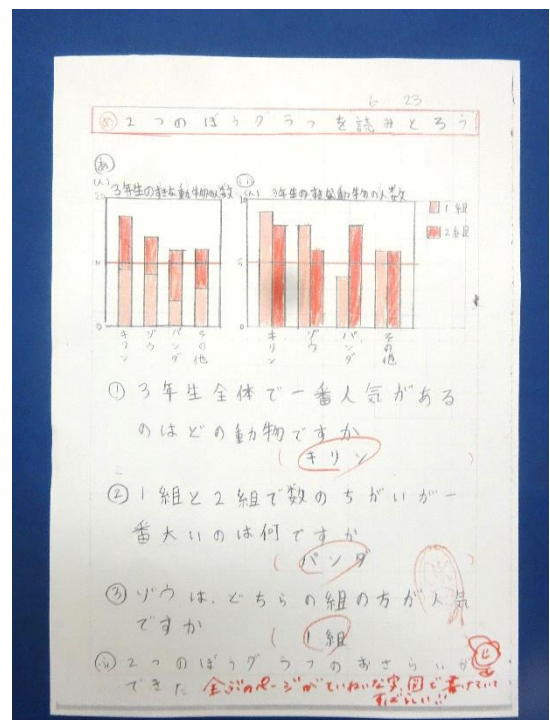 6 23
め 2つのぼうグラフを読みとろう
あ
(人) 3年生のすきな動物の人数
20
10
0
キリン
ゾウ
パンダ
その他
い
(人) 3年生のすきな動物の人数
10
5
0
1組
2組
キリン
ゾウ
パンダ
その他
① 3年生全体で一番人気がある
のはどの動物ですか
( キリン )
② 1組と2組で数のちがいが一
番大いのは何ですか
( パンダ )
③ ゾウは、どちらの組の方が人気
ですか
( 1組 )
ふ 2つのぼうグラフのおさらいが
できた
全ぶのページがていねいな字、図で書けていて
すばらしい!!